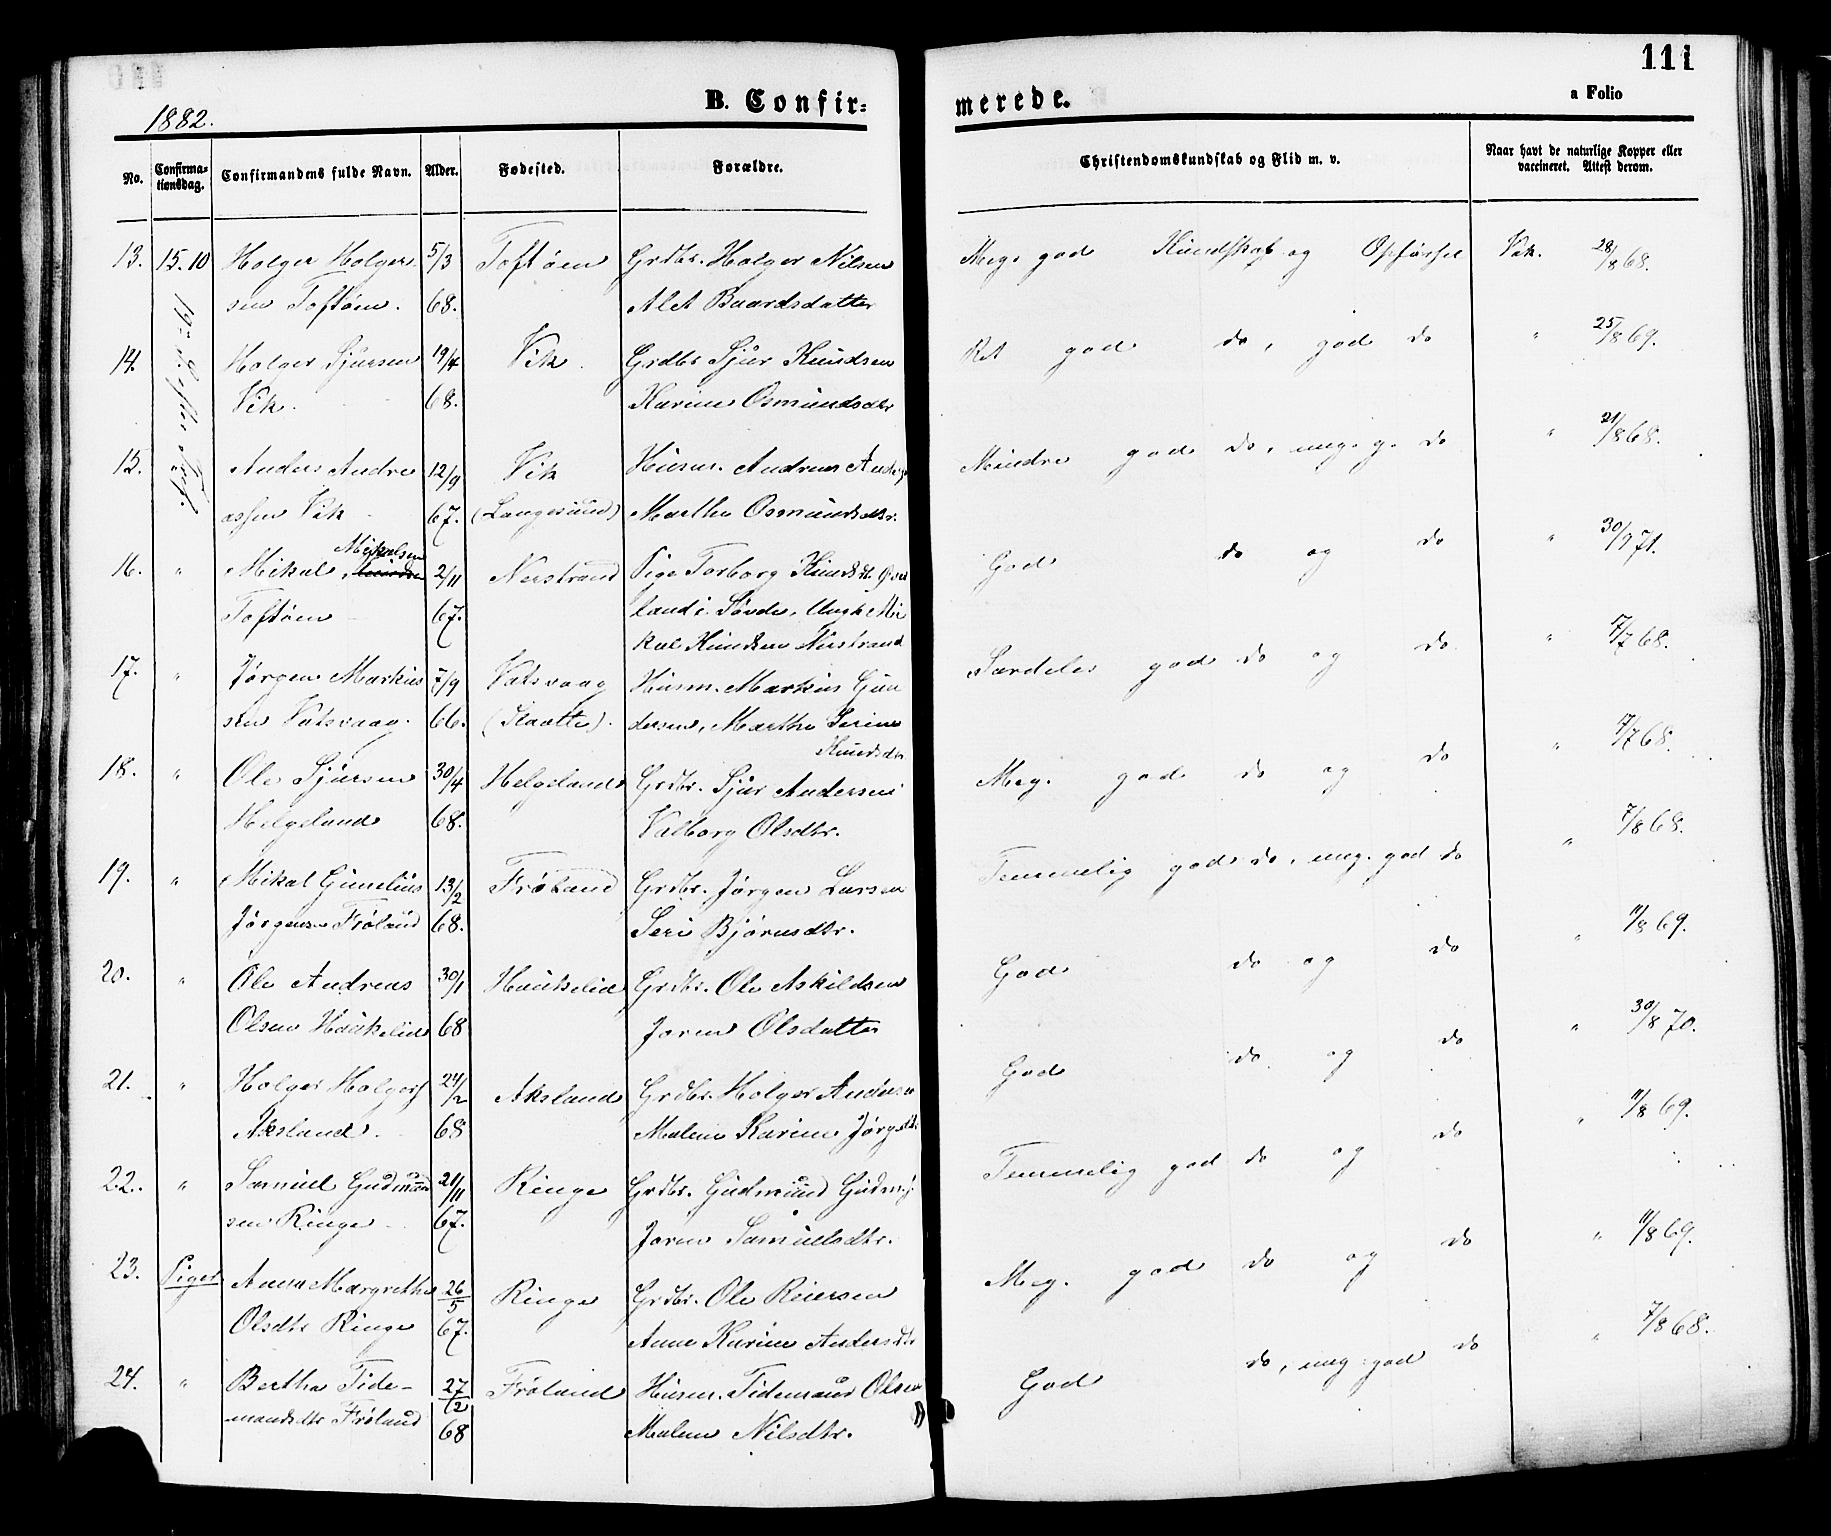 111
1882.
B. Confir=
merede.
a Folio
No.
Confirma=
tionsdag.
Confirmandens fulde Navn.
Alder.
Fødested.
Forældre.
Christendomskundskab og Flid m. v.
Naar havt de naturlige Kopper eller
vaccineret. Attest derom.
13. 15.10 Holger Holger 5/3 Toftøen Grdbr. Holger Nilsen Meg. god Kundskab og Opførsel Vak. 28/8 68.
sen Toftøen. 68. Alet Baardsdatter
19. S. efter Tref.
14. Holger Sjursen 19/4 Vik. Grdbr Sjur Knudsen Ret god do, god do " 25/8 69.
Vik. 68. Karine Osmundsdtr
15. " Anders Andre 12/9 Vik Husm. Andreas Anders Mindre god do, meg. g. do " 21/8 68.
assen Vik 67. (Langesund) Martha Osmundsdtr.
Mikalsen
16. " Mikal 2/11 Nerstrand Pige Torborg Knudsdt. God do og do " 30/9 71.
Toftøen 67. land i Søvde, Ungk. Mi
kal Knudsen Nerstrand
17. " Jørgen Markus 7/9 Vatsvaag Husm. Markus Gun Særdeles god do og do " 7/7 68.
sen Vatsvaag. 66. (Slaatte). dersen, Martha Serine
Knudsdtr
18. " Ole Sjursen 30/4 Helgeland Grdbr. Sjur Andersen Meg. god do og do " 7/7 68.
Helgeland 68. Valborg Olsdtr.
19. " Mikal Gunelius 13/2 Frøland Grdbr. Jørgen Larsen Temmelig god do, meg. god do " 7/8 68.
Jørgensen Frøland 68. Seri Bjørnsdtr.
20. " Ole Andreas 30/1 Haukelid Grdbr. Ole Askildsen God do og do " 11/8 69.
Olsen Haukelid 68 Joren Olsdatter
21. " Holger Holgers 24/2 Aksland Grdbr. Holger Andersen God do og do " 30/8 70.
Aksland. 68 Malene Karine Jørgsdtr.
22. " Samuel Gudmund 21/11 Ringe Grdbr. Gudmund Gudms. Temmelig god do og do " 11/8 69.
sen Ringe 67. Joren Samuelsdtr.
23. Piger Anna Margrethe 26/5 Ringe Grdbr. Ole Reiersen Meg. god do og do " 11/8 69.
Olsdtr Ringe 67. Anne Karine Andersdtr
24. " Bertha Tide- 27/2 Frøland Husm. Tidemand Olsen God do, meg. god do " 7/8 68.
mandsdtr Frøland 68 Malene Nilsdtr.